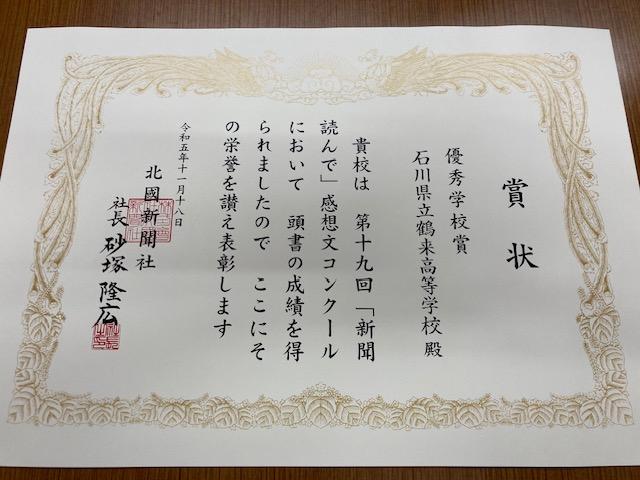 賞状
優秀学校賞
石川県立鶴来高等学校殿
貴校は 第十九回「新聞
読んで」感想文コンクール
において 頭書の成績を得
られましたので ここにそ
の栄誉を讃え表彰します
令和五年十一月十八日
北國新聞社
社長 砂塚隆広